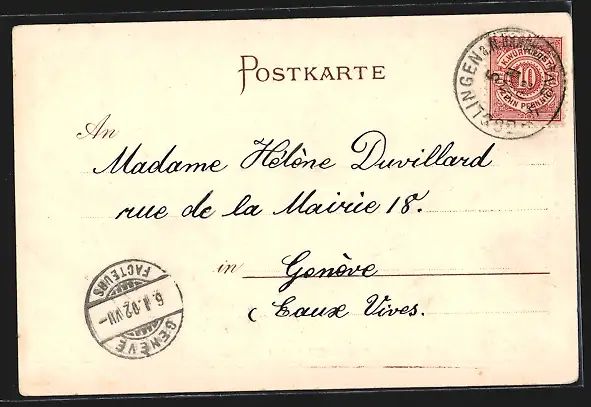 POSTKARTE
K. WÜRTTEMB. POST
10
ZEHN PFENNIG
An
Madame Hélène Duvillard
rue de la Mairie 18.
in Genève
Eaux Vives.
FACTEURS
02.VII
GENÈVE